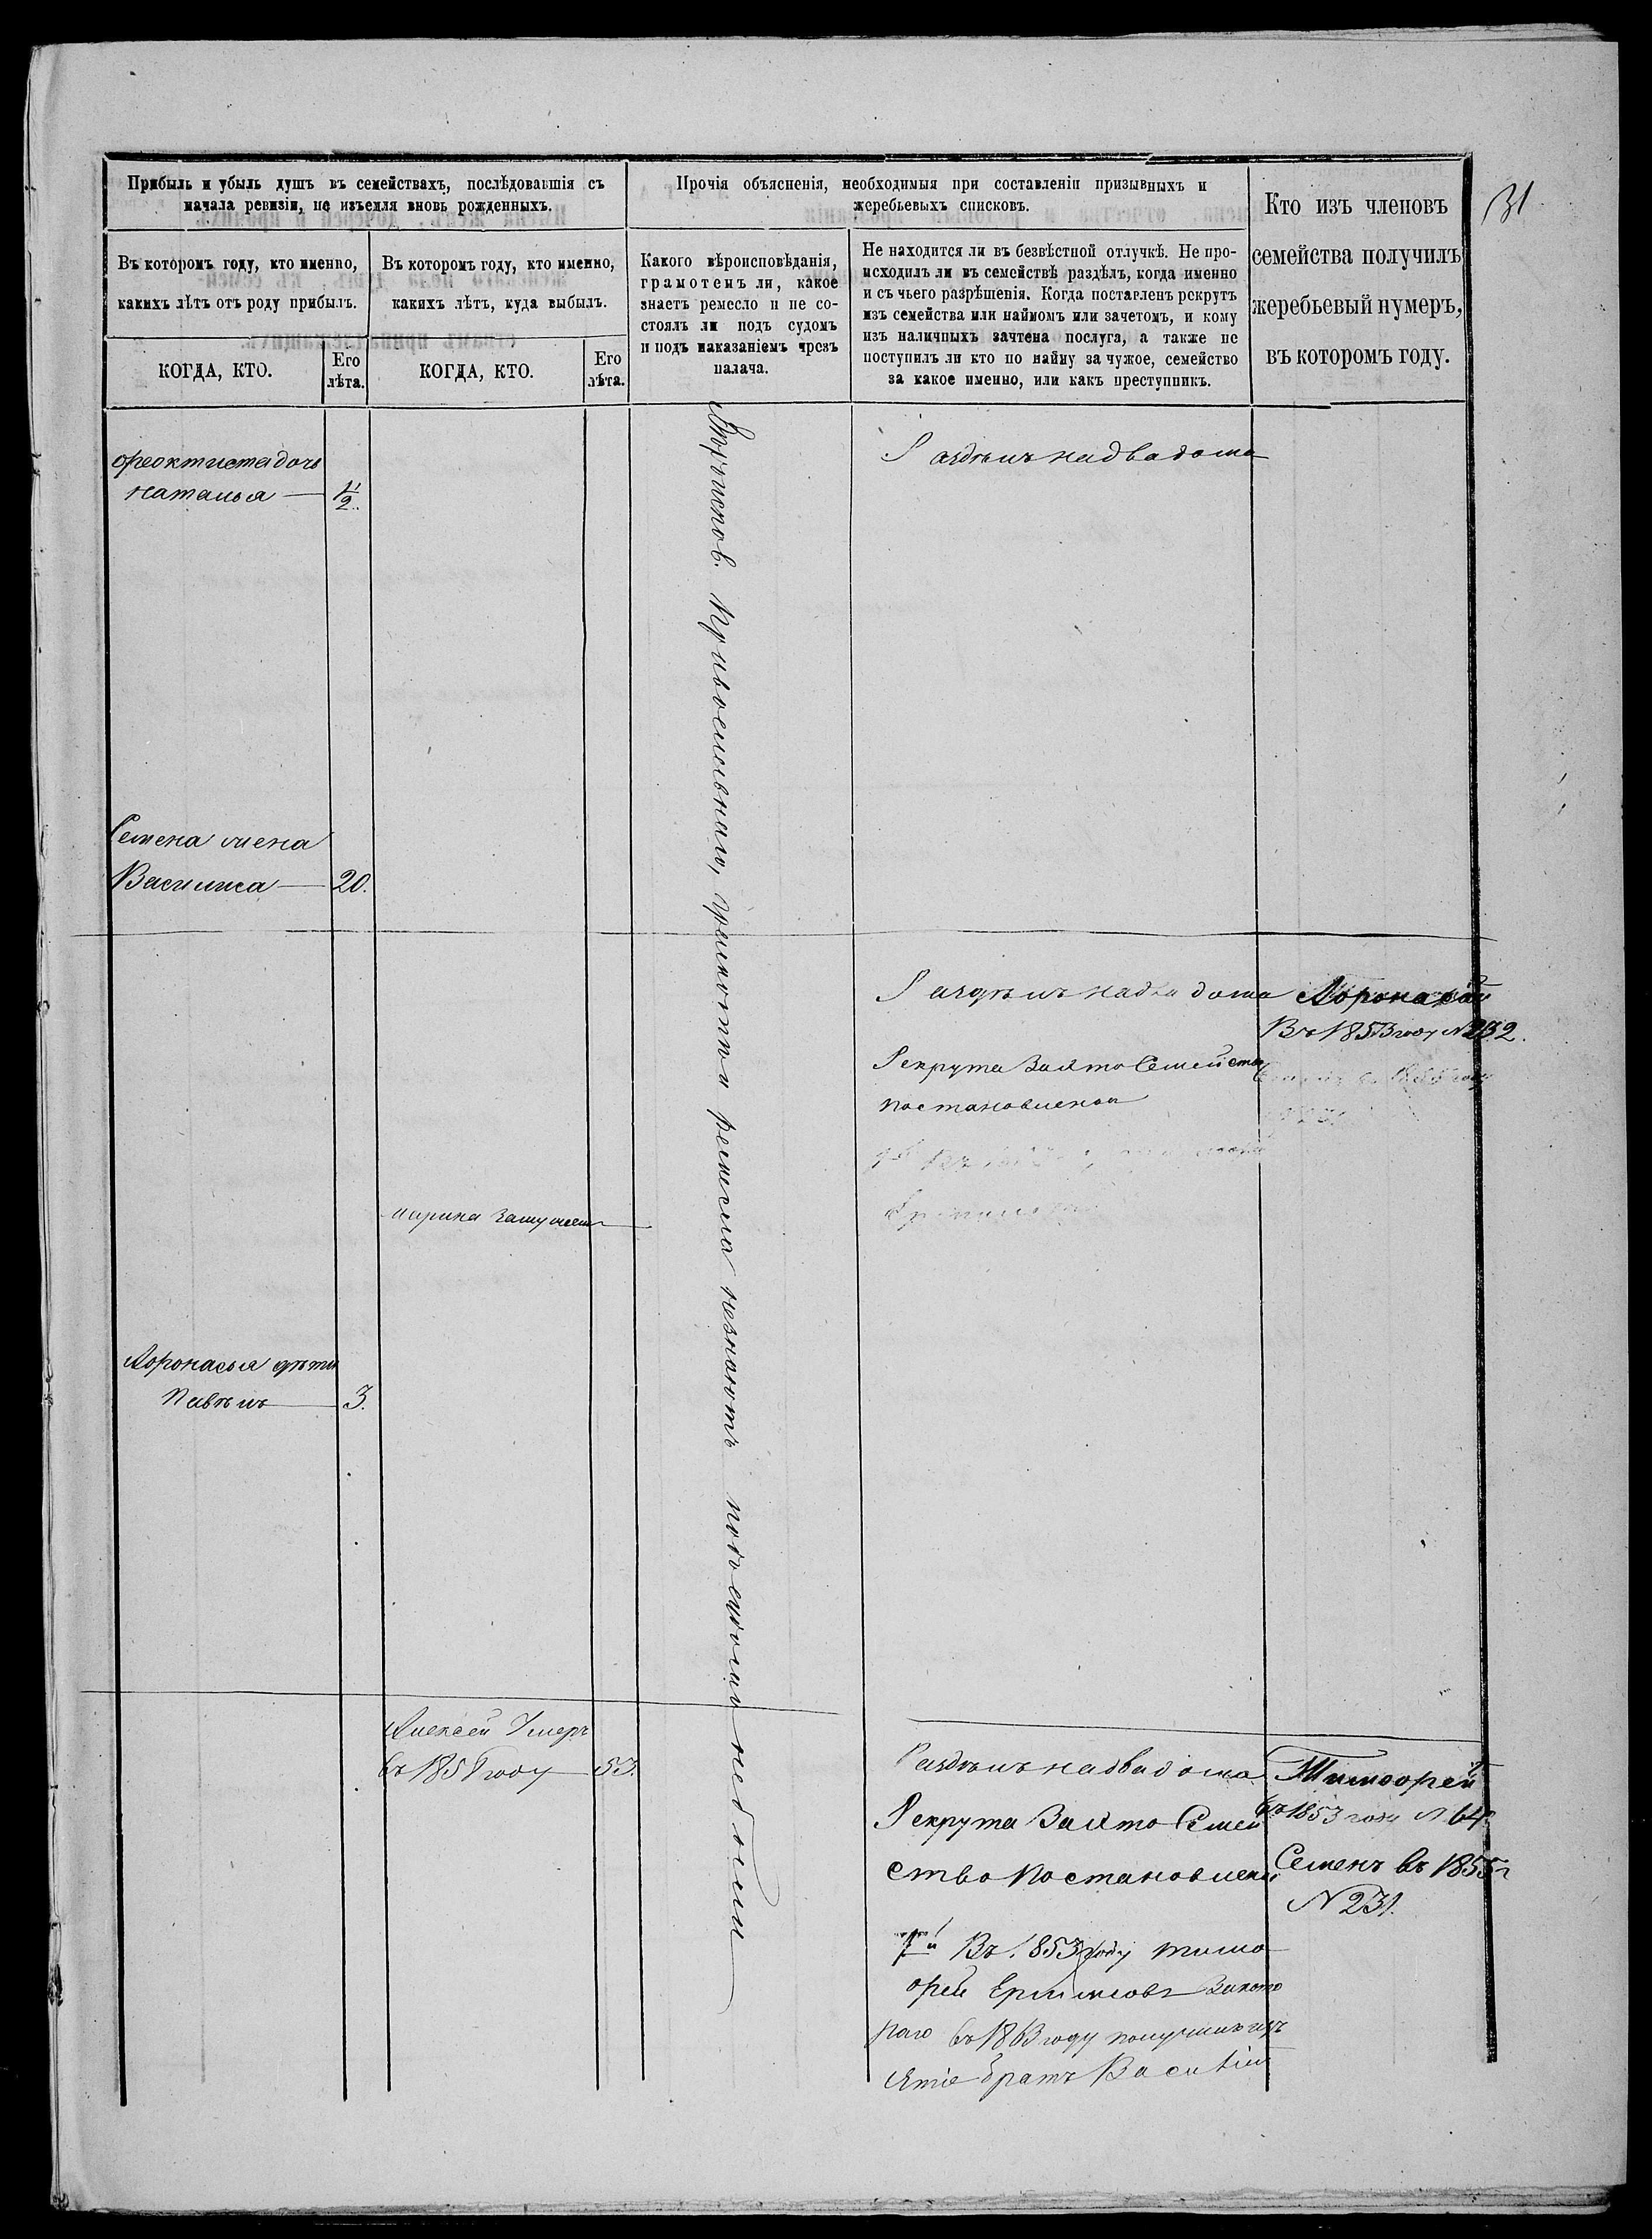 31
Прибыль и убыль душъ въ семействахъ, послѣдовавшія съ
начала ревизіи, не изъемля вновь рожденныхъ.
Прочія объясненія, необходимыя при составленіи призывныхъ и
жеребьевыхъ списковъ.
Кто изъ членовъ
семейства получилъ
жеребьевый нумеръ,
въ которомъ году.
Въ которомъ году, кто именно,
какихъ лѣтъ отъ роду прибылъ.
Въ которомъ году, кто именно,
какихъ лѣтъ, куда выбылъ.
Какого вѣроисповѣданія,
грамотенъ ли, какое
знаетъ ремесло и не со-
стоялъ ли подъ судомъ
и подъ наказаніемъ чрезъ
палача.
Не находится ли въ безвѣстной отлучкѣ. Не про-
исходилъ ли въ семействѣ раздѣлъ, когда именно
и съ чьего разрѣшенія. Когда поставленъ рекрутъ
изъ семейства или наймомъ или зачетомъ, и кому
изъ наличныхъ зачтена послуга, а также не
поступилъ ли кто по найму за чужое, семейство
за какое именно, или какъ преступникъ.
КОГДА, КТО.
Его
лѣта.
КОГДА, КТО.
Его
лѣта.
Феоктиста дочь
Наталья — 1/2.
Раздѣлъ на два дома
Семена жена
Василиса — 20.
Раздѣлъ на два дома
Рекрута Взято Семейство
постановленои
Афонасій
Въ 1853 году N 232.
Марина Замужем
Афонасья дѣти
Павѣлъ — 3.
Алексей Умеръ
въ 185 году — 53.
Раздѣлъ на два дома
Рекрута Взято Семей
ство Постановлени
1й Въ 1853 году Тимо
фей Ефимовъ Закото
раго въ 1863 году получилъ изъ
ятіе братъ Василій
Тимофей
въ 1853 году N 64.
Семенъ въ 1855 г
N 231.
ремесла незнаютъ подъ судомъ небыли